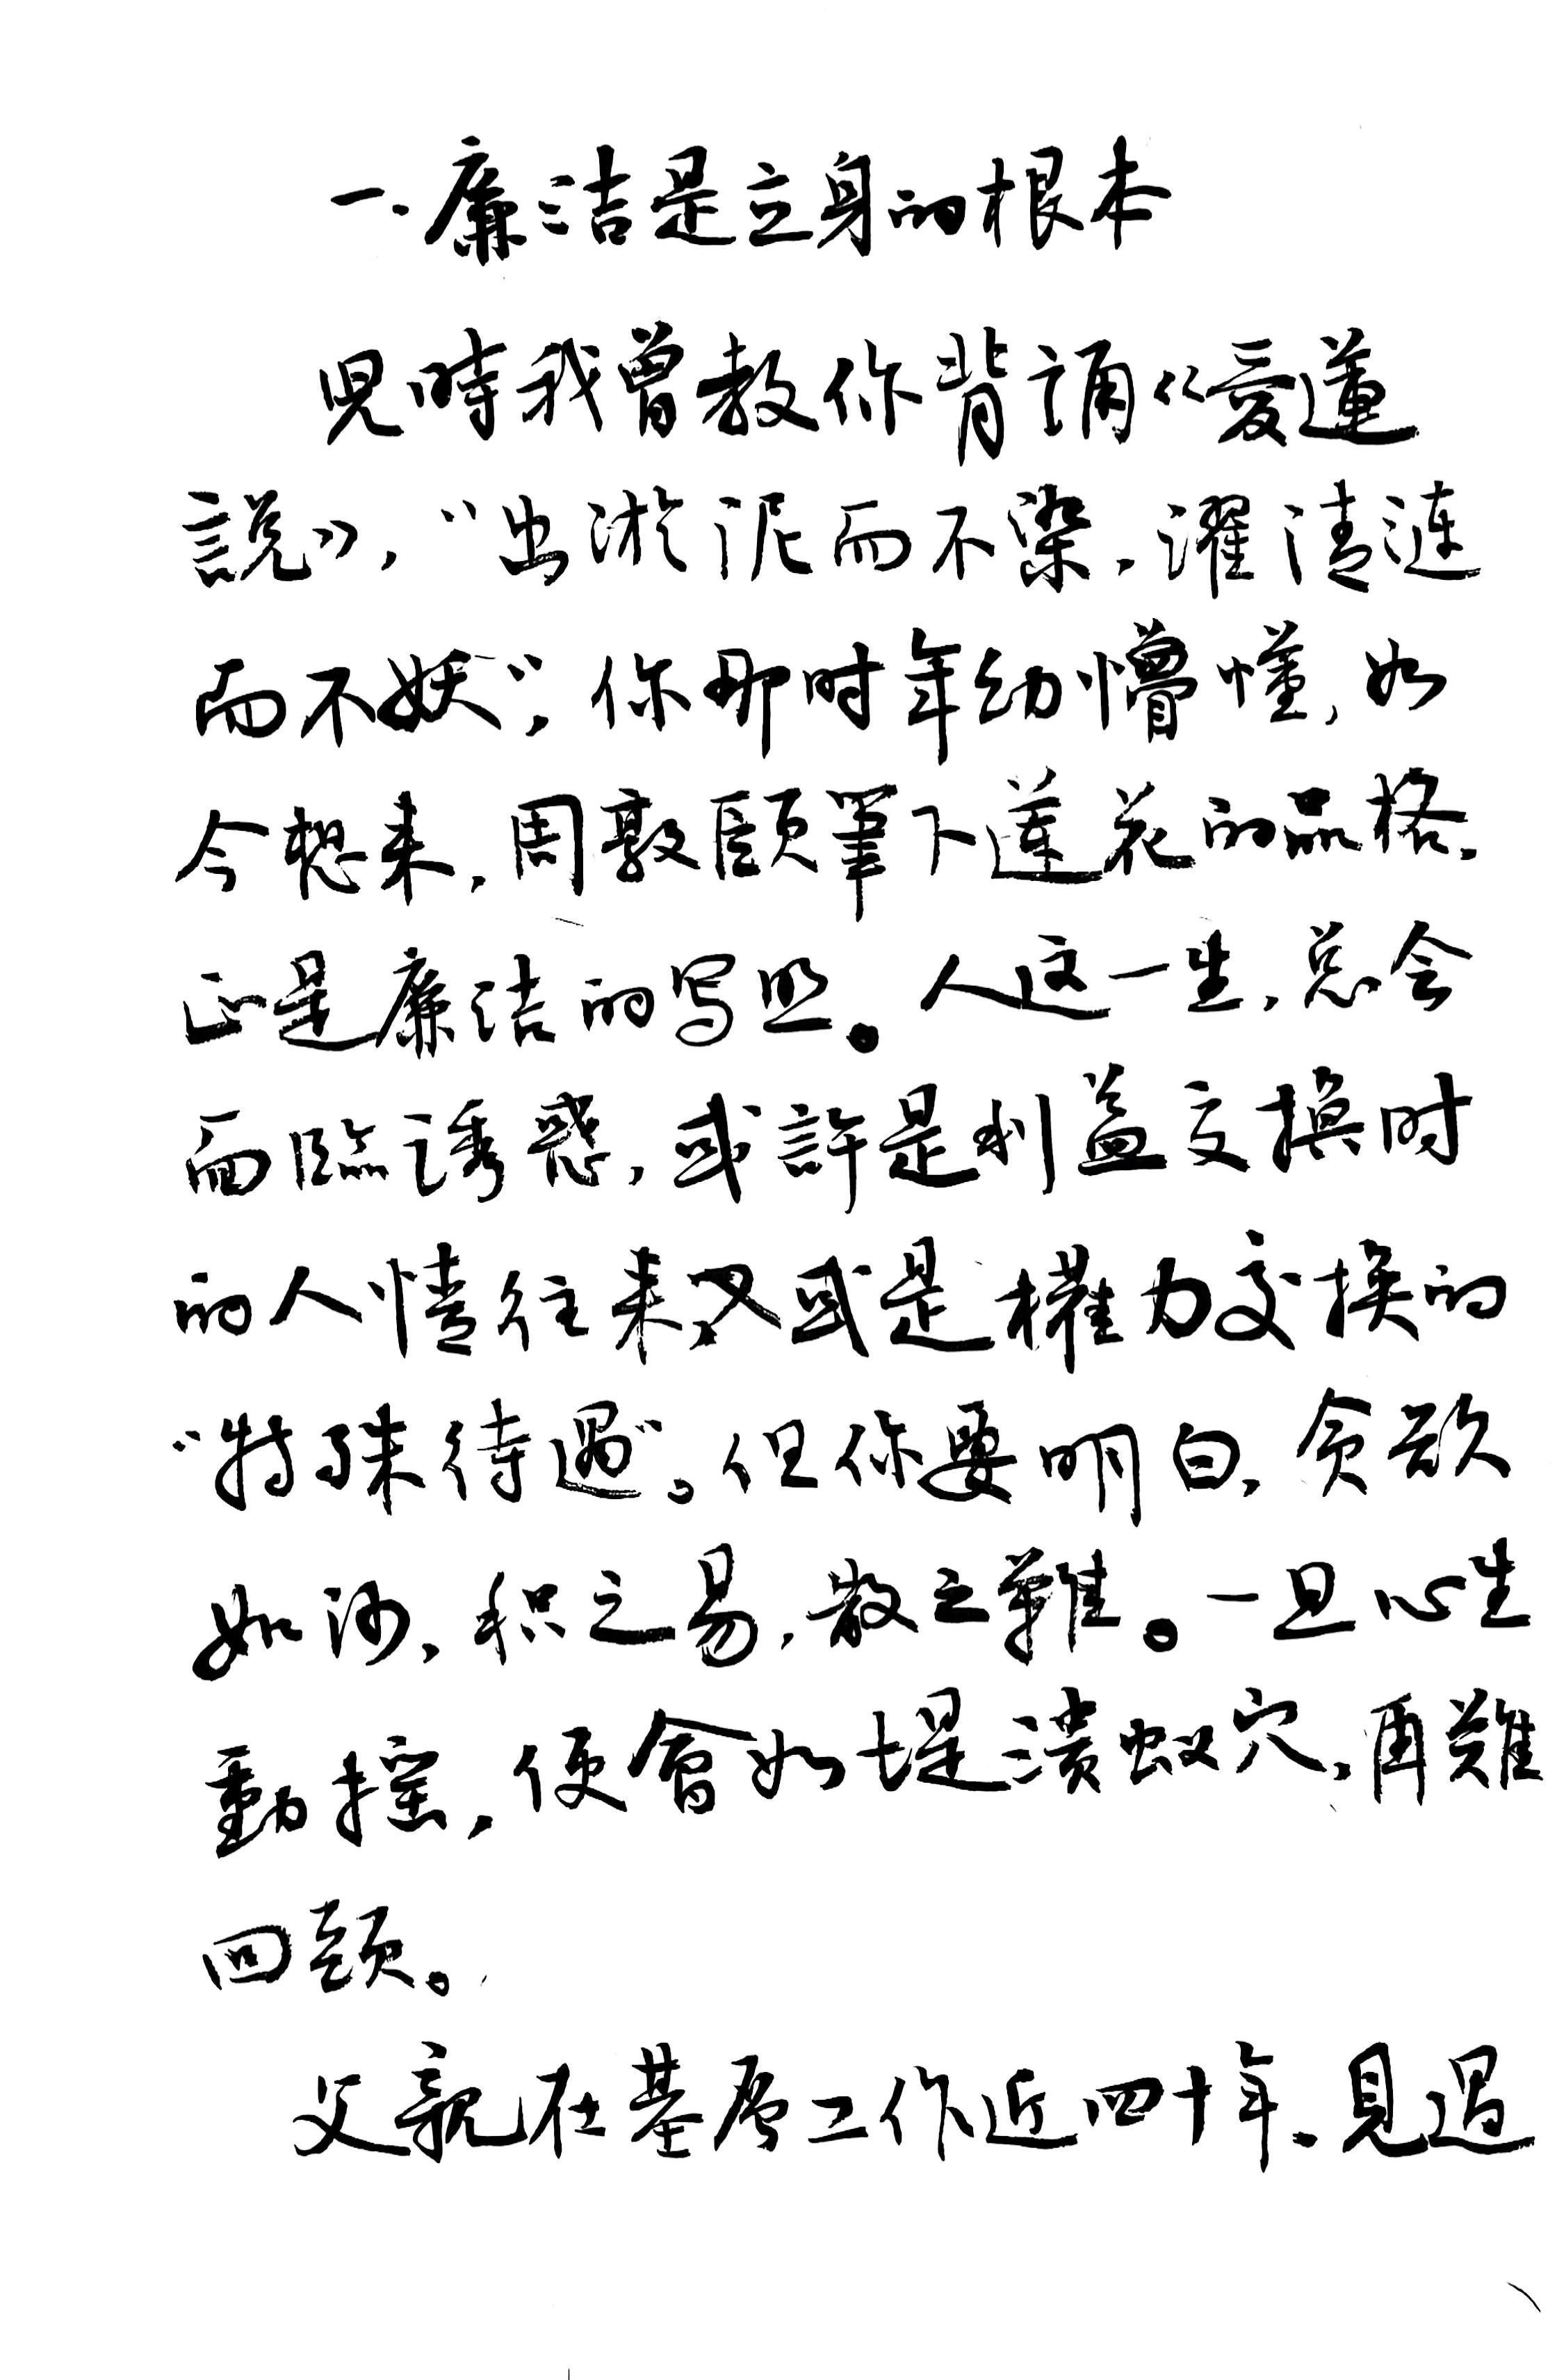 一.廉洁是立身的根本
兒時我曾教你背誦《爱蓮
說》，“出淤泥而不染，濯清涟
而不妖”，你那时年幼懵懂，如
今想来，周敦頤筆下莲花的品格，
正是廉洁的写照。人这一生，总会
面臨诱惑，或許是利益交换时
的人情往来，又或是權力交换的
“特殊待遇”。但你要明白，贪欲
如沙，积之易，散之難。一旦心生
動摇，便會如堤溃蚁穴，再難
回頭。
父親在基层工作近四十年，見過